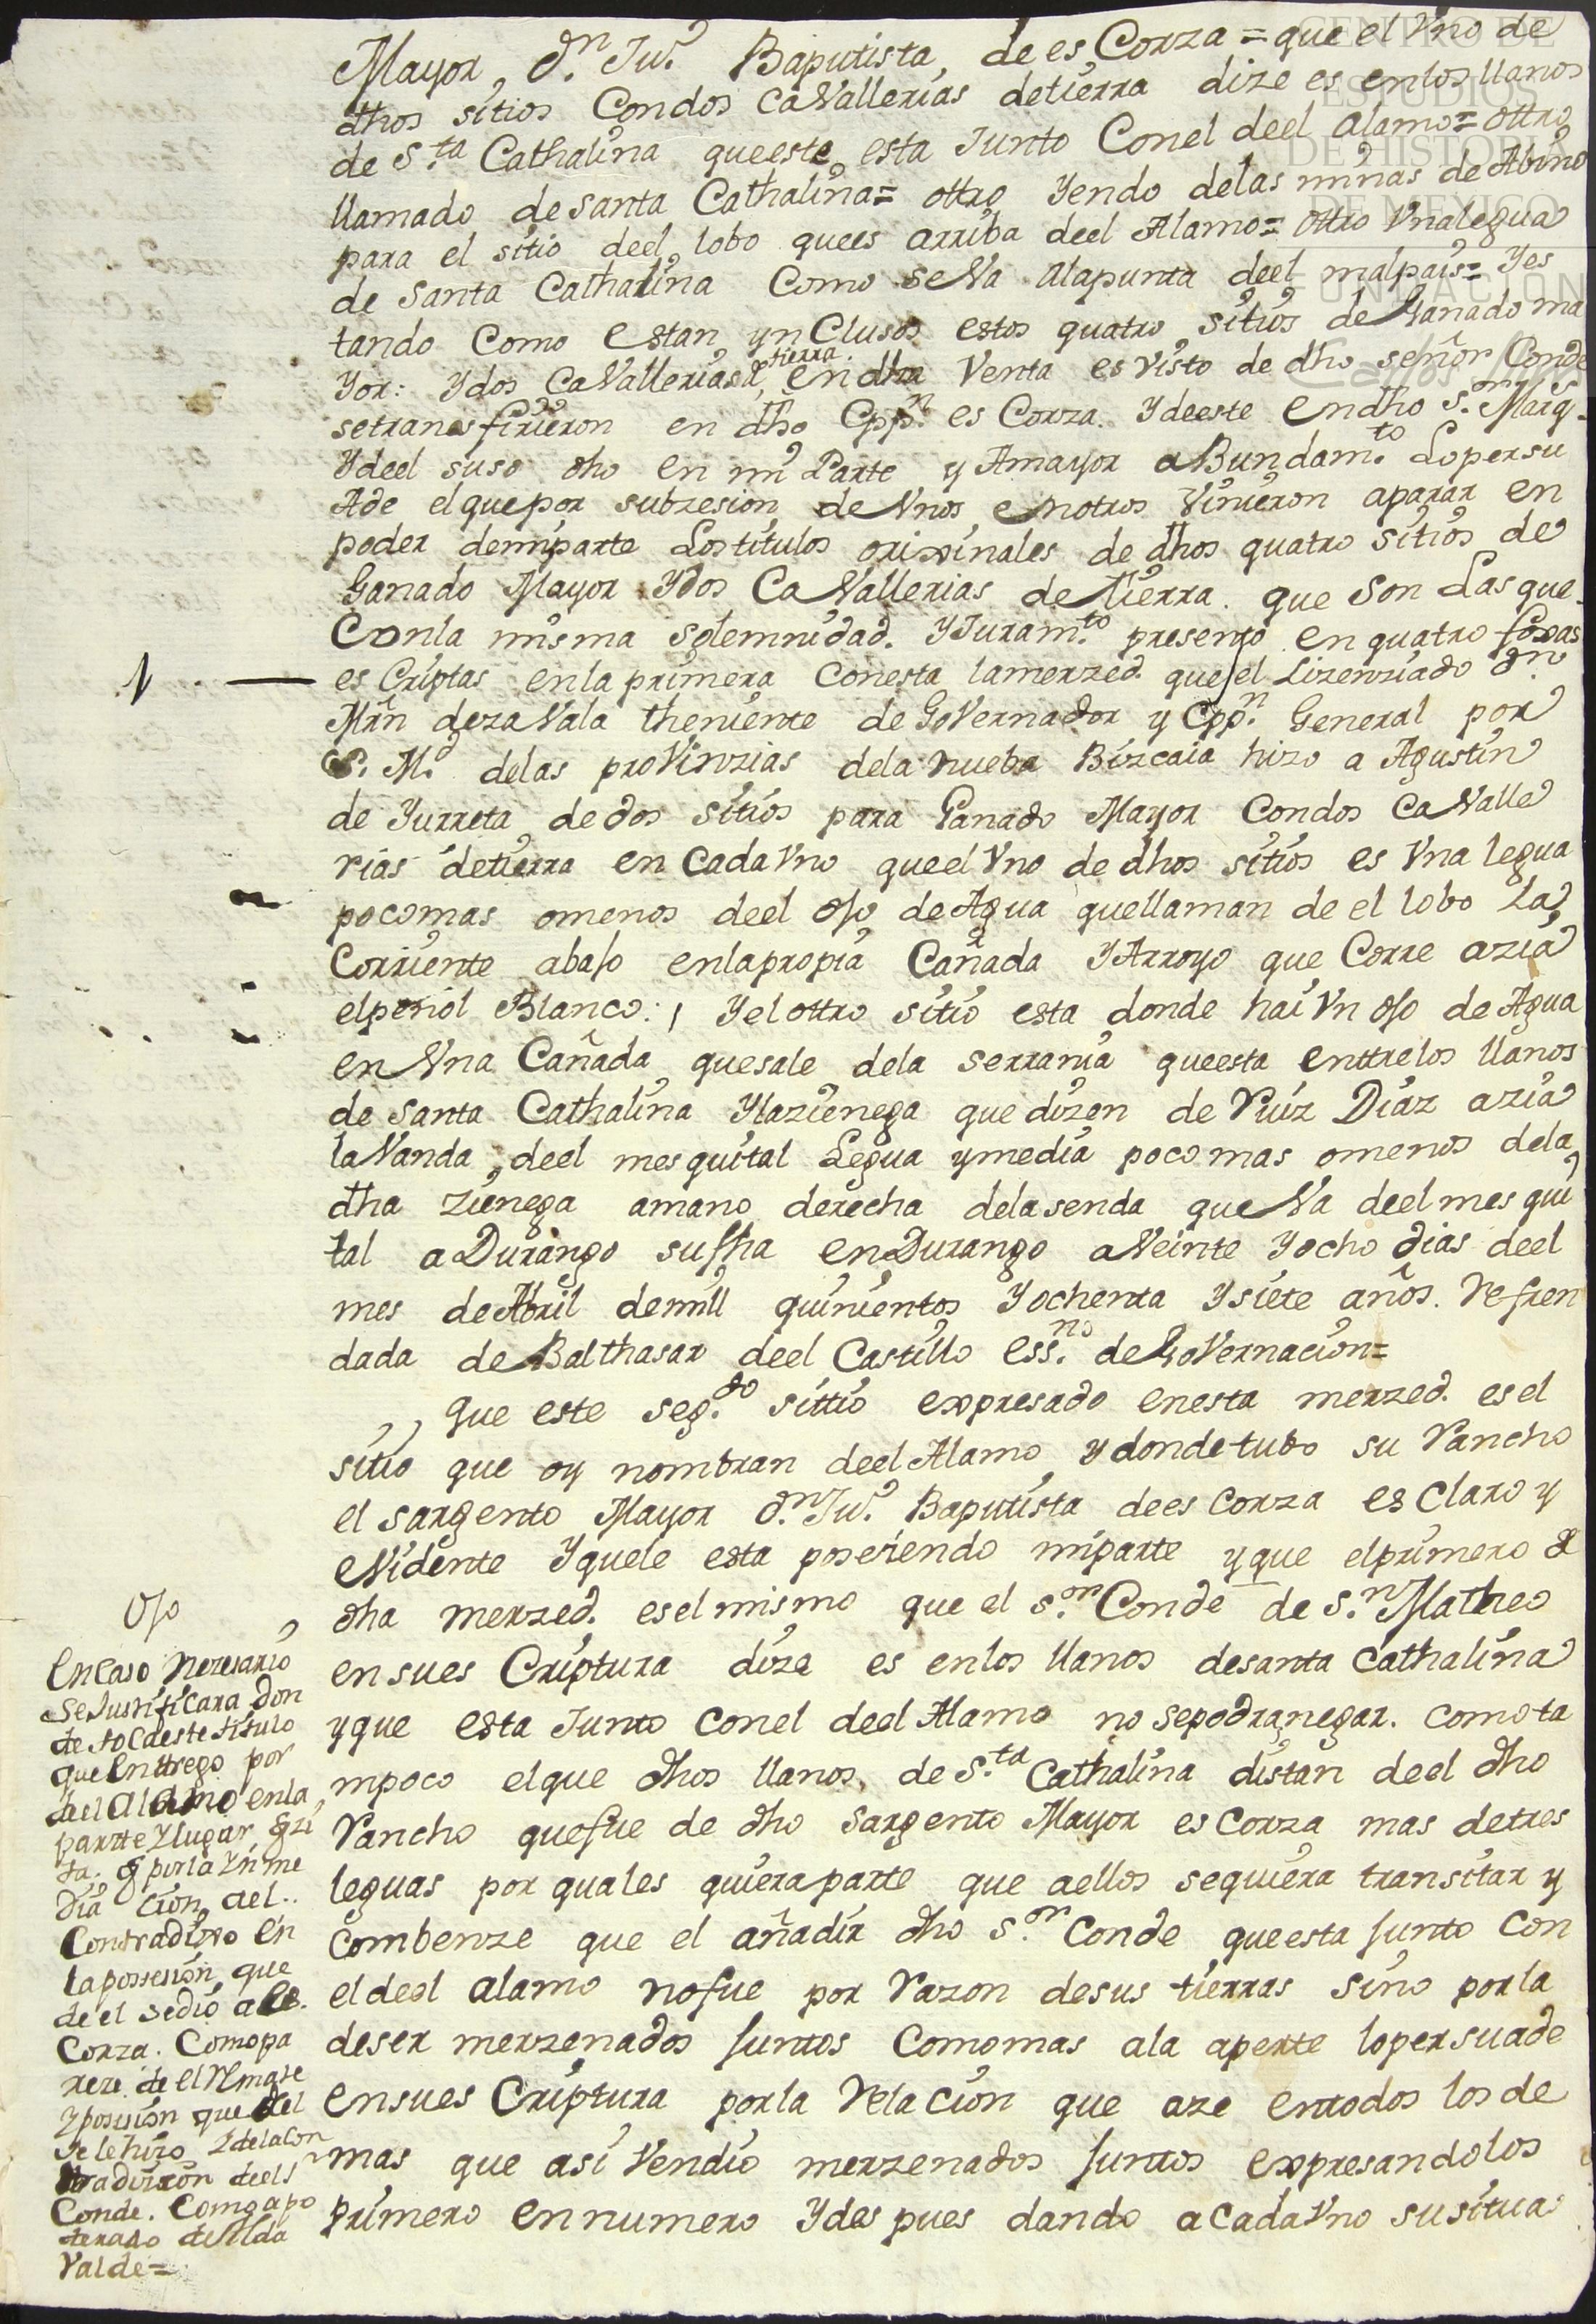 Mayor, d.n Ju.o Baptista, de es Corza = que el Vno de
dhos sitios Condos CaVallerias detierra dize es enlos llanos
de S.ta Cathalina queeste esta Junto Conel deel alamo= ottro
llamado de santa Cathalina= ottro Yendo delas minas de Abino
para el sitio deel lobo quees arriba deel Alamo= ottro Vnalegua
de santa Cathalina Como seVa alapunta deel malpais= Yes
tando Como estan ynClusos estos quatro sitios de Ganado ma
Yor: Ydos CaVallerias d tierra. en dha Venta es visto de dho señor Conde
setransfirieron en dho Cpp.n es Corza. Ydeeste endho S.or Marq.s
Ydeel suso dho en mi Parte y Amayor aBundam.to Lopersu
Ade elquepor subzesion de Vnos enotros Vinieron aparar en
poder demiparte Lostitulos orixinales de dhos quatro sitios de
Ganado Mayor Ydos CaVallerias de tierra. que son Lasque
Conla misma solemnidad. YJuram.to presento en quatro foxas
1 — esCriptas enlaprimera Conesta lamerzed. que el Lizenziado d.n
Mrn dezaVala theniente de GoVernador y Cpp.n General por
S. M.d delas proVinzias dela nueba Bizcaia hizo a Agustin
de Yurreta de dos sitios para Ganado Mayor Condos CaValle
rias detierra en CadaVno queel Vno de dhos sitios es Vna legua
pocomas omenos deel oJo de Agua quellaman de el lobo La
Corriente abaJo enlapropia Cañada YArroyo que Corre azia
elpeñol Blanco: Yelottro sitio esta donde hai Vn oJo de Agua
enVna Cañada quesale dela serrania queesta enttrelos llanos
de santa Cathalina Ylazienega que dizen de Ruiz Diaz azia
laVanda deel mesquital Legua ymedia pocomas omenos dela
dha zienega amano derecha delasenda queVa deelmesqui
tal aDurango sufha enDurango aVeinte Yocho dias deel
mes deAbril demill quinientos Yochenta Ysiete años. Refren
dada deBalthasar deel Castillo ess.no deGoVernacion=
Que este seg.do sittio expresado enesta merzed. esel
sitio que oy nombran deelAlamo ydondetubo su Rancho
el sargento Mayor d.n Ju.o Baptista dees Corza es Claro y
eVidente Yquele esta poseiendo miparte yque elprimero d
dha merzed. esel mismo que el s.or Conde de S.n Matheo
ensues Criptura dize es enlos llanos desanta Cathalina
yque esta Junto conel deel Alamo no sepodranegar. comota
mpoco elque dhos llanos, de S.ta Cathalina distan deel dho
Rancho quefue de dho sargento Mayor es Corza mas detres
leguas por quales quieraparte que aellos sequiera transitar y
Combenze que el añadir dho s.or Conde queesta Junto Con
eldeel alamo nofue por Razon desus tierras sino porla
deser merzenados Juntos Comomas ala aperte lopersuade
ensues Criptura porla Relacion que aze entodos los de
mas que asi Vendio merzenados Juntos expresandolos
primero ennumero Ydespues dando aCadaVno susitua
oJo
Encaso Nezesario
seJustificara don
de toCdeste titulo
queEnttrego por
deel alamo enla
partte Ylugar qzi
ta. q porla Ynme
dia cion del..
Contradixo en
laposesion que
de el sedio a es.
Corza. Comopa
reze de el Rmate
Yposesion que del
se lehizo Ydelacon
tradizion deels
Conde. Comoapo
derado de Alda
Valde=